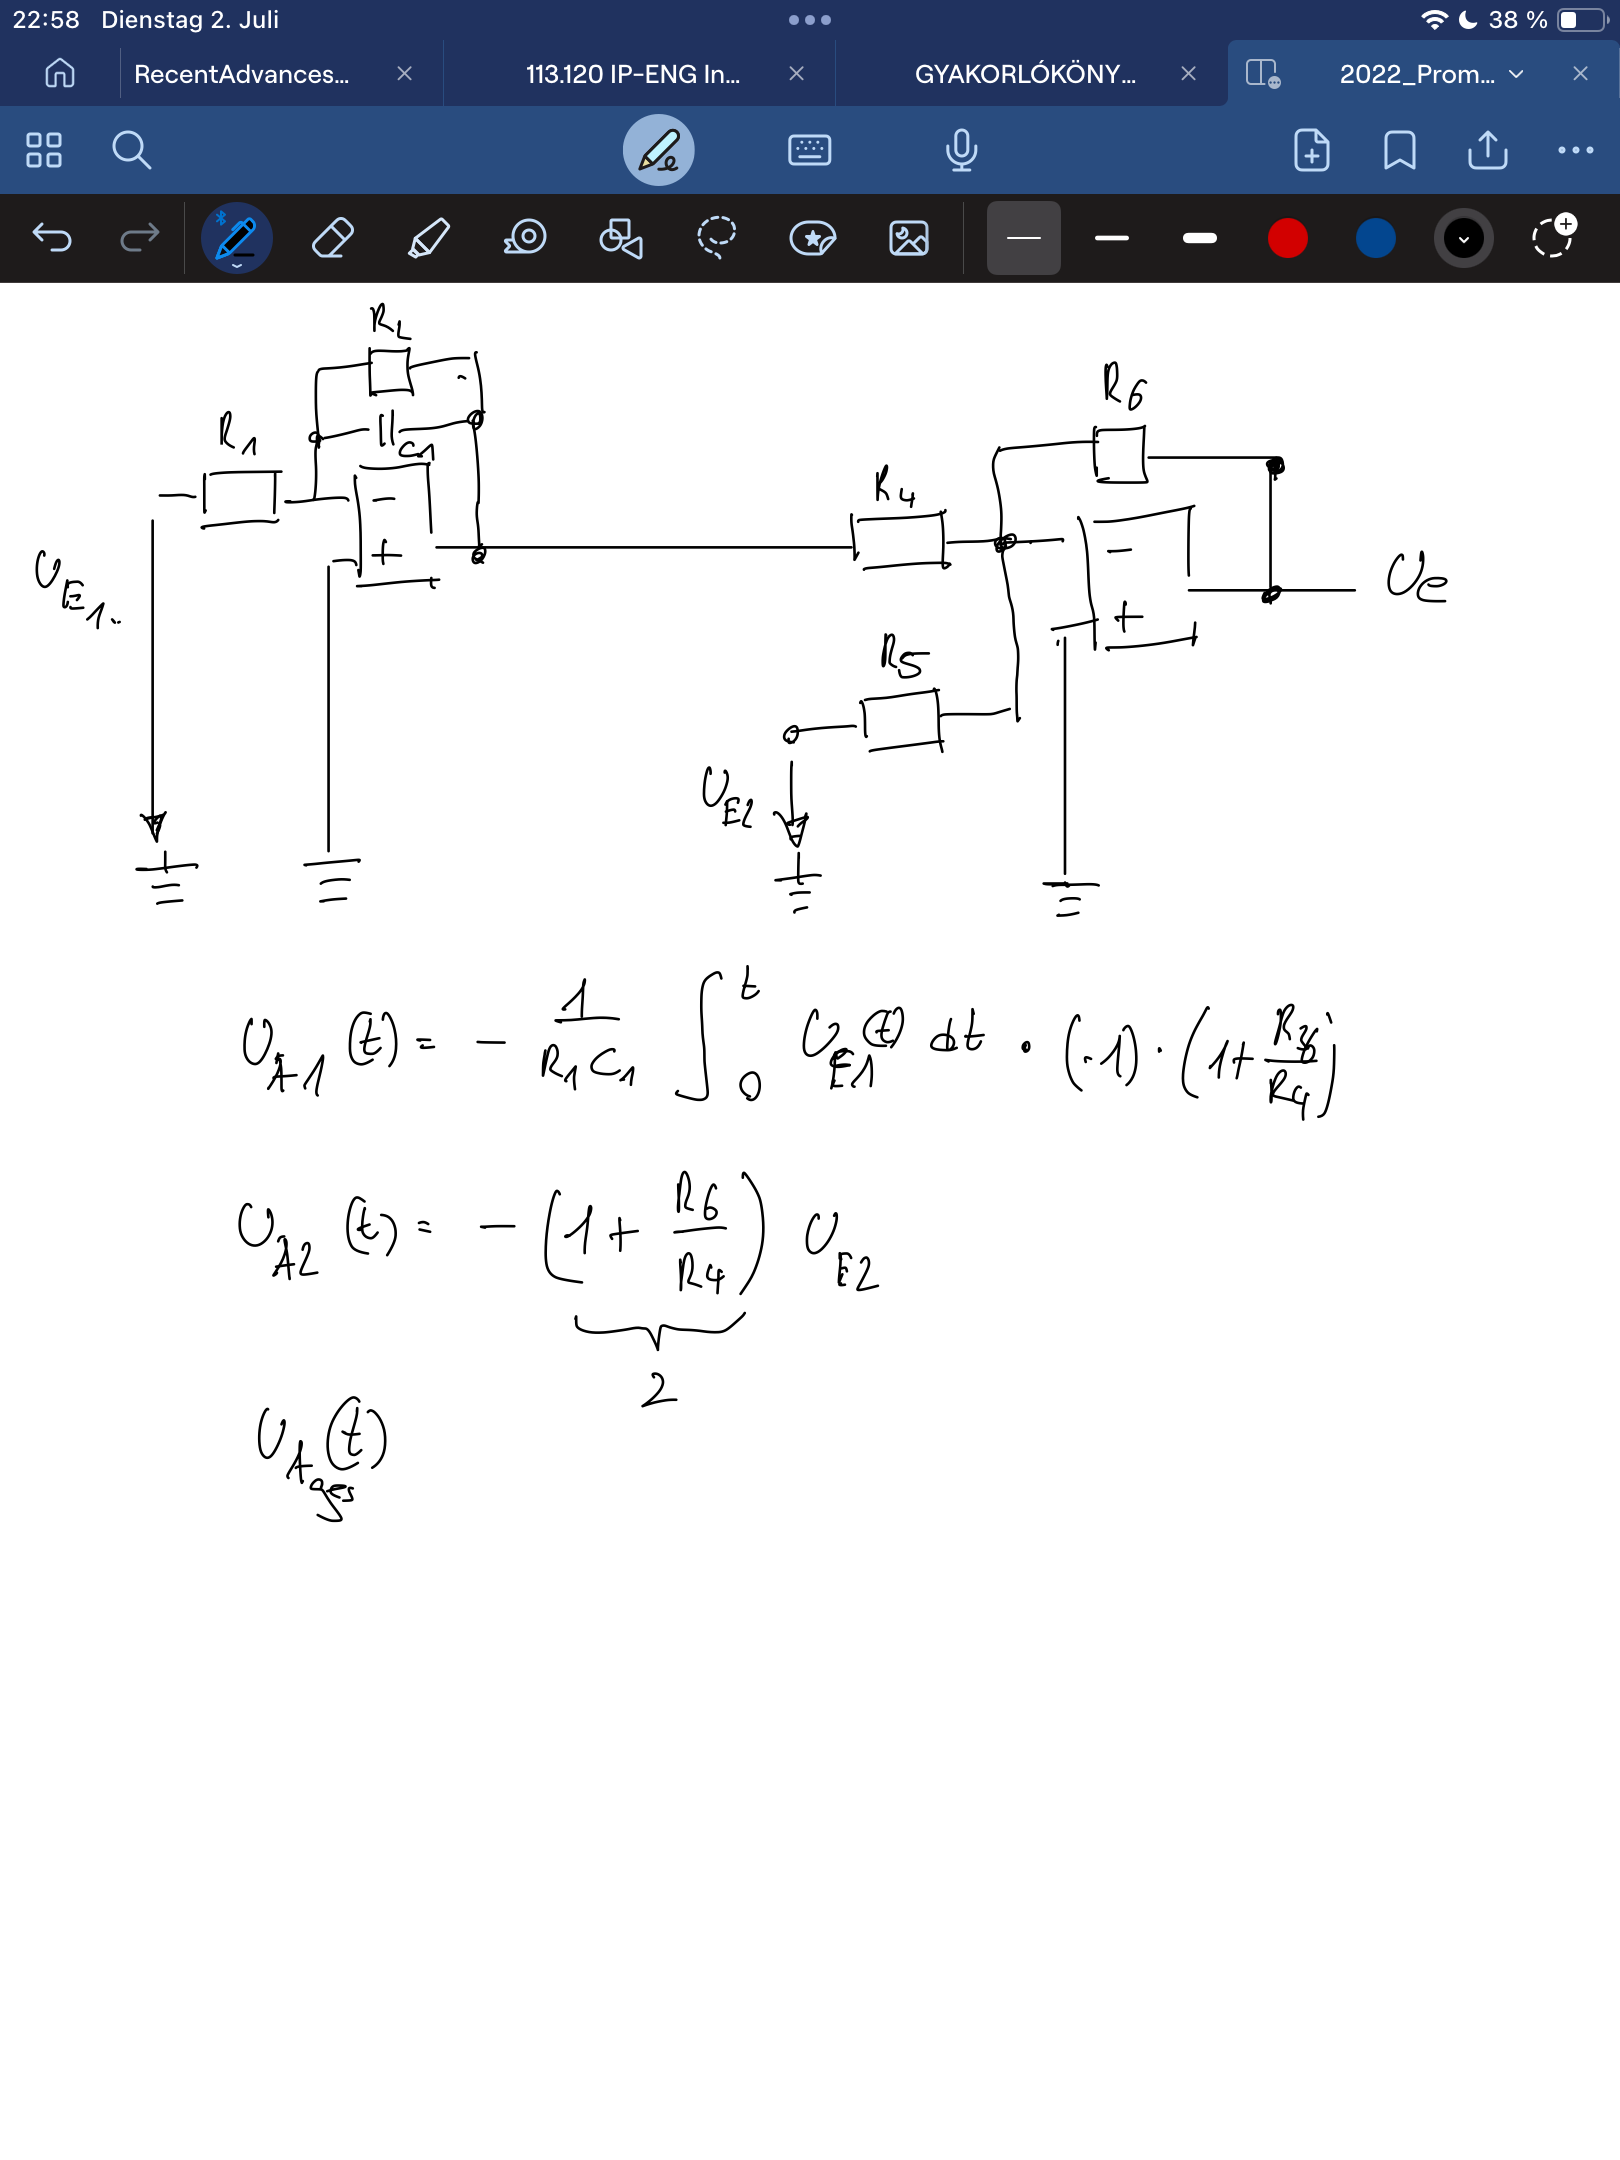 22:58 Dienstag 2. Juli
38 %
RecentAdvances...
113.120 IP-ENG In...
GYAKORLÓKÖNY...
2022_Prom...
R2
R1
C1
-
+
UE1
R4
R5
UE2
R6
-
+
Ue
UA1 (t) = - 1/(R1 C1) ∫0^t UE1(t) dt · (-1) · (1 + R6/R4)
UA2 (t) = - (1 + R6/R4) UE2
2
UAges(t)